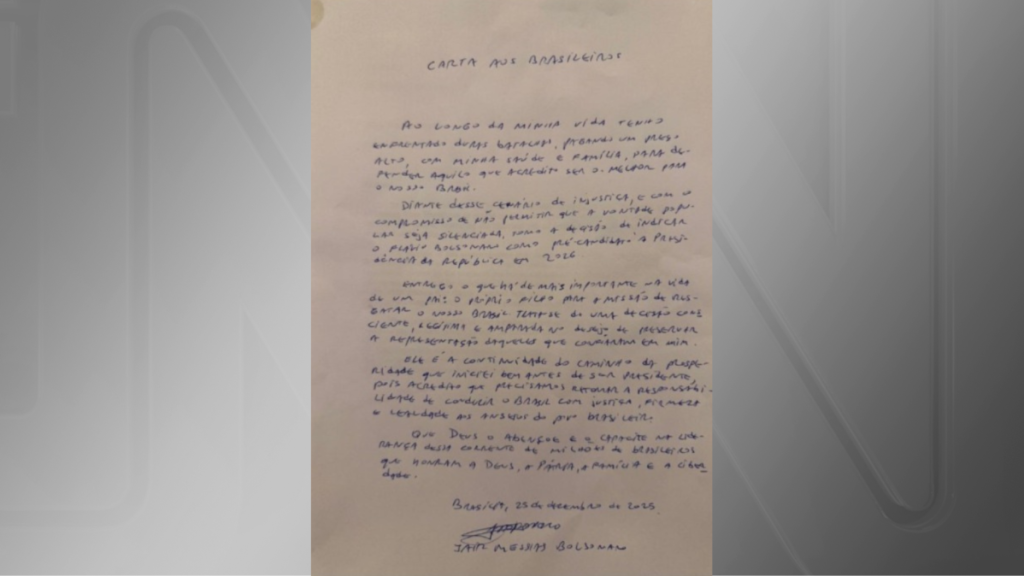 CARTA AOS BRASILEIROS
AO LONGO DA MINHA VIDA TENHO
ENFRENTADO DURAS BATALHAS, PAGANDO UM PREÇO
ALTO, COM MINHA SAÚDE E FAMÍLIA, PARA DE-
FENDER AQUILO QUE ACREDITO SER O MELHOR PARA
O NOSSO BRASIL.
DIANTE DESSE CENÁRIO DE INJUSTIÇA, E COM O
COMPROMISSO DE NÃO PERMITIR QUE A VONTADE POPU-
LAR SEJA SILENCIADA, TOMO A DECISÃO DE INDICAR
O FLÁVIO BOLSONARO COMO PRÉ-CANDIDATO À PRESI-
DÊNCIA DA REPÚBLICA EM 2026
ENTREGO O QUE HÁ DE MAIS IMPORTANTE NA VIDA
DE UM PAI: O PRÓPRIO FILHO PARA A MISSÃO DE RES-
GATAR O NOSSO BRASIL TRATA-SE DE UMA DECISÃO CONS
CIENTE, LEGÍTIMA E AMPARADA NO DESEJO DE PRESERVAR
A REPRESENTAÇÃO DAQUELES QUE CONFIARAM EM MIM.
ELE É A CONTINUIDADE DO CAMINHO DA PROSPE-
RIDADE QUE INICIEI BEM ANTES DE SER PRESIDENTE,
POIS ACREDITO QUE PRECISAMOS RETOMAR A RESPONSABI-
LIDADE DE CONDUZIR O BRASIL COM JUSTIÇA, FIRMEZA
E LEALDADE AOS ANSEIOS DO POVO BRASILEIRO.
QUE DEUS O ABENÇOE E O CAPACITE NA LIDE-
RANÇA DESSA CORRENTE DE MILHÕES DE BRASILEIROS
QUE HONRAM A DEUS, A PÁTRIA, A FAMÍLIA E A LIBER-
DADE.
BRASÍLIA, 25 de dezembro de 2025.
JAIR MESSIAS BOLSONARO